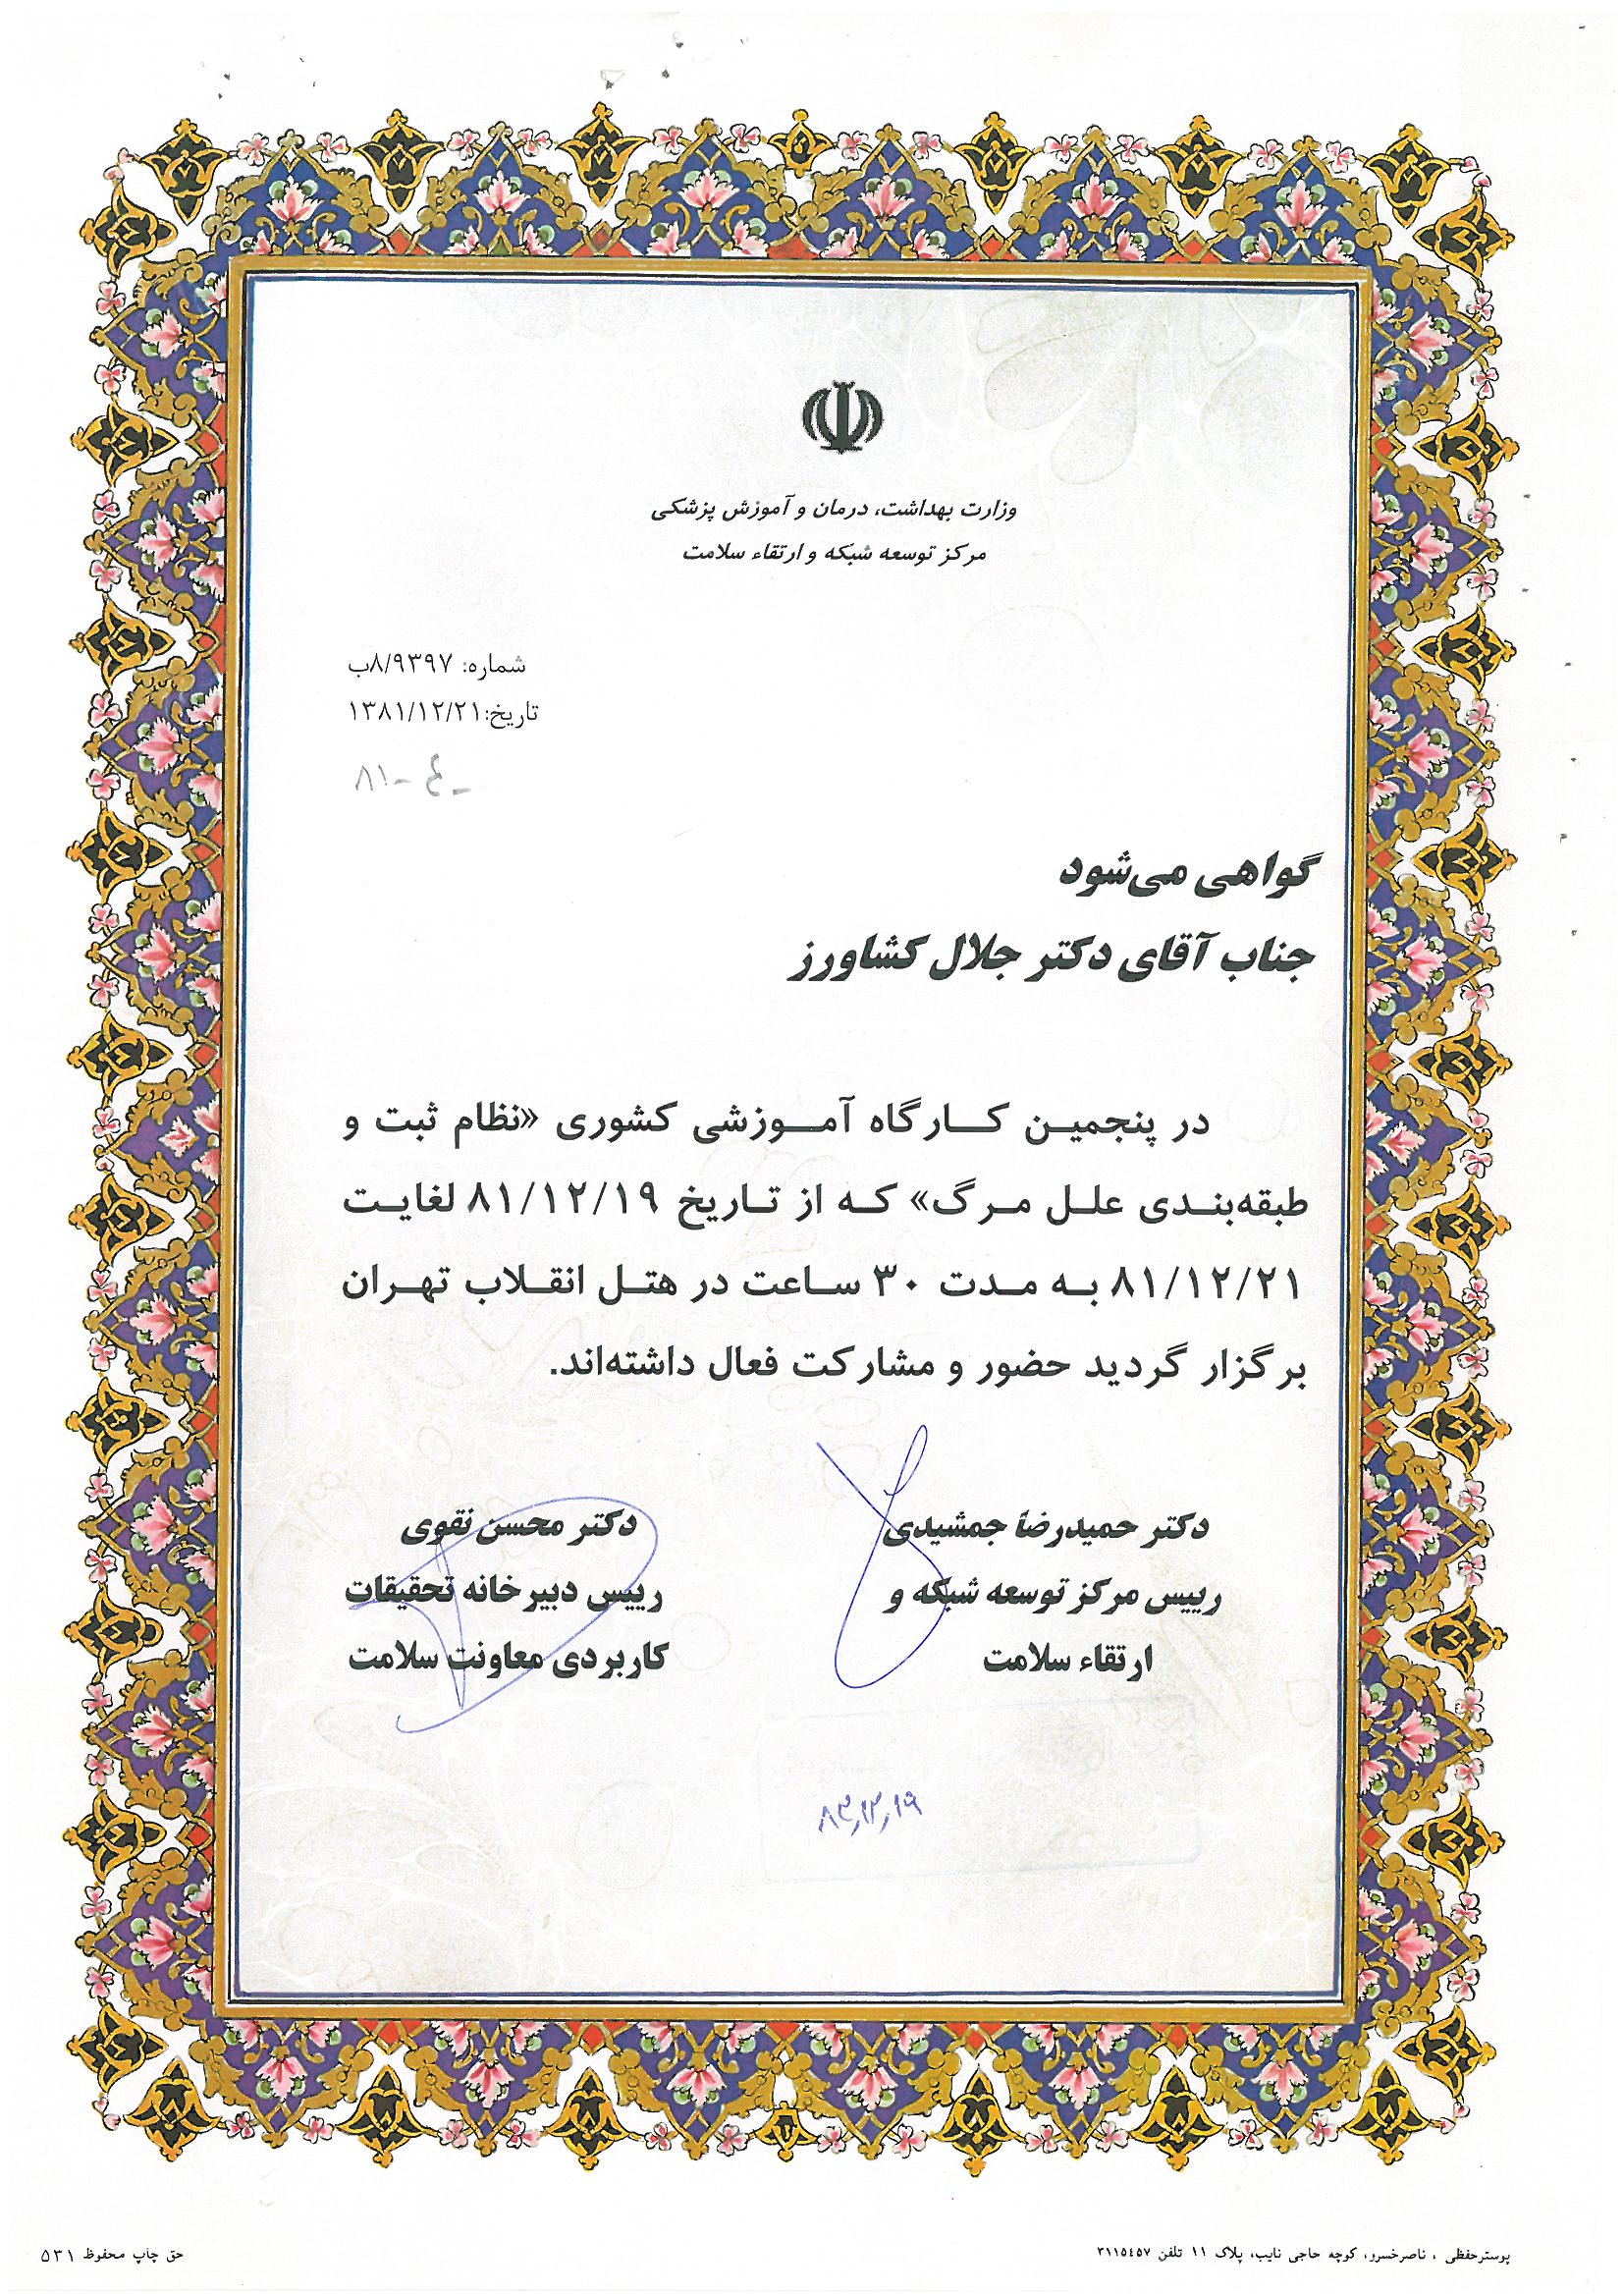 وزارت بهداشت، درمان و آموزش پزشکی
مرکز توسعه شبکه و ارتقاء سلامت
شماره: ۸/۹۳۹۷ب
تاریخ: ۱۳۸۱/۱۲/۲۱
گواهی می‌شود
جناب آقای دکتر جلال کشاورز
در پنجمین کارگاه آموزشی کشوری «نظام ثبت و
طبقه‌بندی علل مرگ» که از تاریخ ۸۱/۱۲/۱۹ لغایت
۸۱/۱۲/۲۱ به مدت ۳۰ ساعت در هتل انقلاب تهران
برگزار گردید حضور و مشارکت فعال داشته‌اند.
دکتر حمیدرضا جمشیدی
رییس مرکز توسعه شبکه و
ارتقاء سلامت
دکتر محسن نقوی
رییس دبیرخانه تحقیقات
کاربردی معاونت سلامت
پوسترحفظی ، ناصرخسرو، کوچه حاجی نایب، پلاک ۱۱ تلفن ۳۱۱۵٤۵۷
حق چاپ محفوظ ۵۳۱